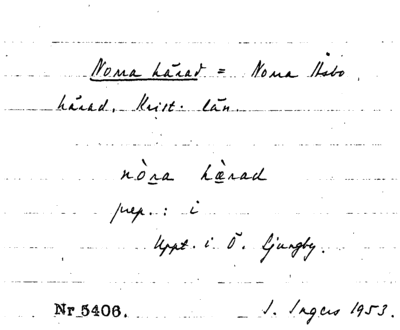 Norra härad = Norra Åsbo
härad, Krist. län.
nò̱ra hæ̱̀rad
prep. : i
Uppt. i Ö. Ljungby.
Nr 5406. I. Ingers 1953.